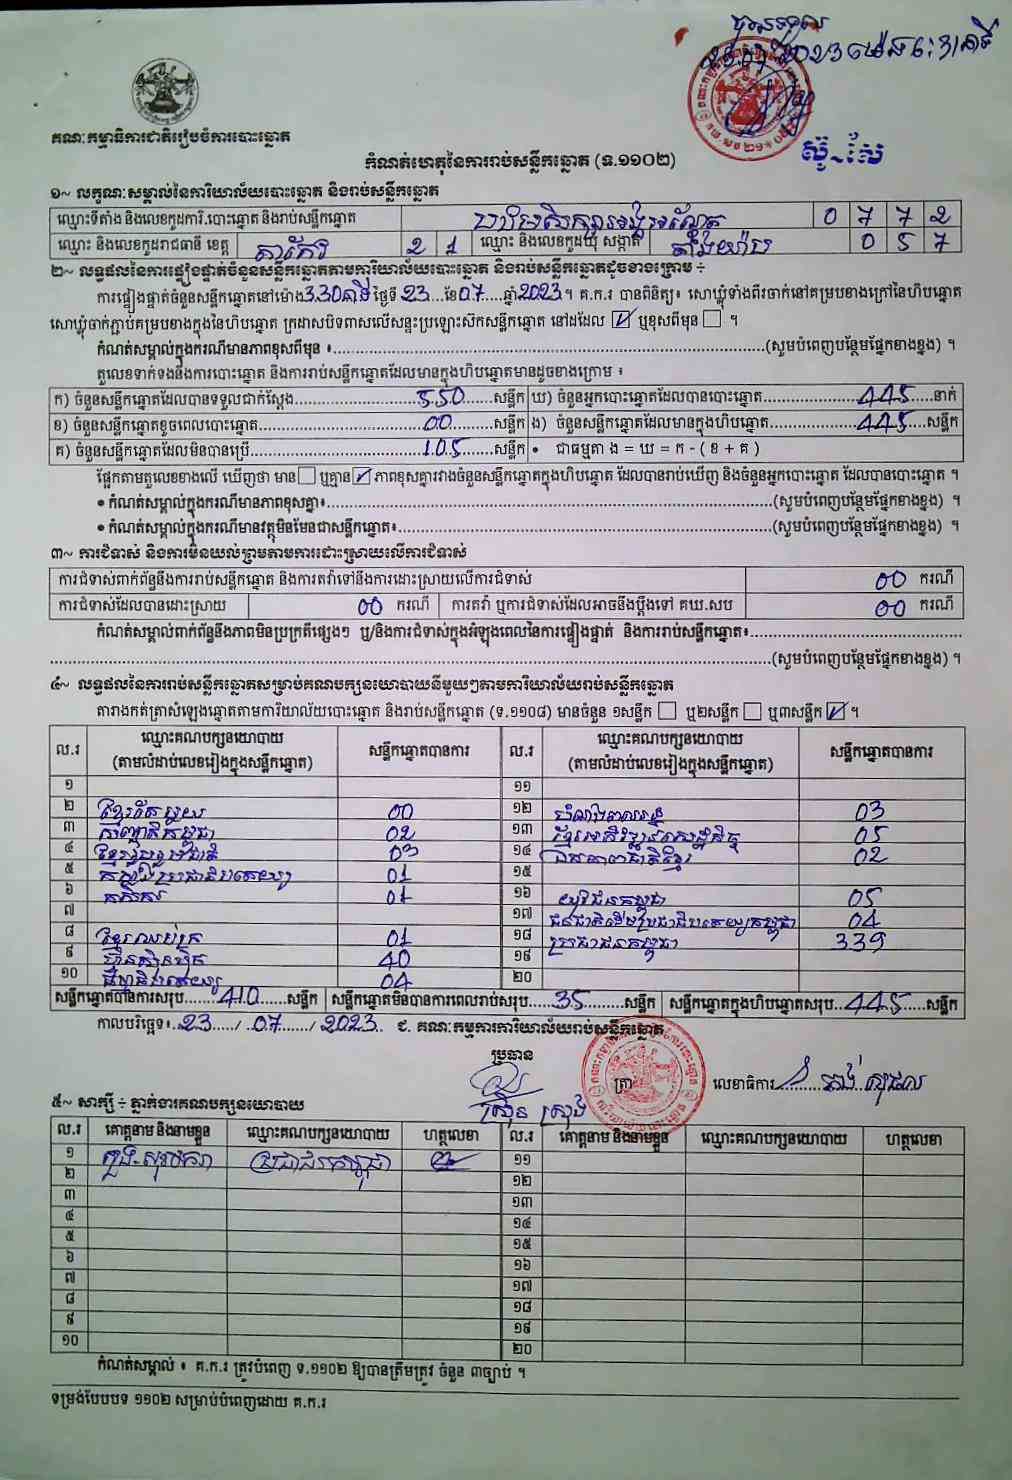 ជូនទទួល
23.07.2023 ម៉ោង ៤:31នាទី
ស៊ូ សែ
គណៈកម្មាធិការជាតិរៀបចំការបោះឆ្នោត
កំណត់ហេតុនៃការរាប់សន្លឹកឆ្នោត (ទ.១១០២)
១~ លក្ខណៈសម្គាល់នៃការិយាល័យបោះឆ្នោត និងរាប់សន្លឹកឆ្នោត
ឈ្មោះទីតាំង និងលេខកូដការិ.បោះឆ្នោត និងរាប់សន្លឹកឆ្នោត 0 7 7 2
ឈ្មោះ និងលេខកូដរាជធានី ខេត្ត តាកែវ 2 1 ឈ្មោះ និងលេខកូដឃុំ សង្កាត់ តាំងយ៉ាប 0 5 7
២~ លទ្ធផលនៃការផ្ទៀងផ្ទាត់ចំនួនសន្លឹកឆ្នោតតាមការិយាល័យបោះឆ្នោត និងរាប់សន្លឹកឆ្នោតដូចខាងក្រោម ÷
ការផ្ទៀងផ្ទាត់ចំនួនសន្លឹកឆ្នោតនៅម៉ោង 3.30នាទី ថ្ងៃទី 23 ខែ 07 ឆ្នាំ 2023 ។ គ.ក.រ បានពិនិត្យ៖ សោឃ្លុំទាំងពីរចាក់នៅគម្របខាងក្រៅនៃហិបឆ្នោត
សោឃ្លុំចាក់ភ្ជាប់គម្របខាងក្នុងនៃហិបឆ្នោត ក្រដាសបិទពាសលើសន្ទះប្រឡោះស៊កសន្លឹកឆ្នោត នៅដដែល ☑ ឬខុសពីមុន ☐ ។
កំណត់សម្គាល់ក្នុងករណីមានភាពខុសពីមុន ៖ (សូមបំពេញបន្ថែមផ្នែកខាងខ្នង) ។
តួលេខទាក់ទងនឹងការបោះឆ្នោត និងការរាប់សន្លឹកឆ្នោតដែលមានក្នុងហិបឆ្នោតមានដូចខាងក្រោម ៖
ក) ចំនួនសន្លឹកឆ្នោតដែលបានទទួលជាក់ស្តែង 550 សន្លឹក ឃ) ចំនួនអ្នកបោះឆ្នោតដែលបានបោះឆ្នោត 445 នាក់
ខ) ចំនួនសន្លឹកឆ្នោតខូចពេលបោះឆ្នោត 00 សន្លឹក ង) ចំនួនសន្លឹកឆ្នោតដែលមានក្នុងហិបឆ្នោត 445 សន្លឹក
គ) ចំនួនសន្លឹកឆ្នោតដែលមិនបានប្រើ 105 សន្លឹក • ជាធម្មតា ង = ឃ = ក - ( ខ + គ )
ផ្អែកតាមតួលេខខាងលើ ឃើញថា មាន ☐ ឬគ្មាន ☑ ភាពខុសគ្នារវាងចំនួនសន្លឹកឆ្នោតក្នុងហិបឆ្នោត ដែលបានរាប់ឃើញ និងចំនួនអ្នកបោះឆ្នោត ដែលបានបោះឆ្នោត ។
• កំណត់សម្គាល់ក្នុងករណីមានភាពខុសគ្នា៖ (សូមបំពេញបន្ថែមផ្នែកខាងខ្នង) ។
• កំណត់សម្គាល់ក្នុងករណីមានវត្ថុមិនមែនជាសន្លឹកឆ្នោត៖ (សូមបំពេញបន្ថែមផ្នែកខាងខ្នង) ។
៣~ ការជំទាស់ និងការមិនយល់ព្រមតាមការដោះស្រាយលើការជំទាស់
ការជំទាស់ពាក់ព័ន្ធនឹងការរាប់សន្លឹកឆ្នោត និងការតវ៉ាទៅនឹងការដោះស្រាយលើការជំទាស់ 00 ករណី
ការជំទាស់ដែលបានដោះស្រាយ 00 ករណី ការតវ៉ា ឬការជំទាស់ដែលអាចនឹងប្តឹងទៅ គឃ.សប 00 ករណី
កំណត់សម្គាល់ពាក់ព័ន្ធនឹងភាពមិនប្រក្រតីផ្សេងៗ ឬ/និងការជំទាស់ក្នុងអំឡុងពេលនៃការផ្ទៀងផ្ទាត់ និងការរាប់សន្លឹកឆ្នោត៖
(សូមបំពេញបន្ថែមផ្នែកខាងខ្នង) ។
៤~ លទ្ធផលនៃការរាប់សន្លឹកឆ្នោតសម្រាប់គណបក្សនយោបាយនីមួយៗតាមការិយាល័យរាប់សន្លឹកឆ្នោត
តារាងកត់ត្រាសំឡេងឆ្នោតតាមការិយាល័យបោះឆ្នោត និងរាប់សន្លឹកឆ្នោត (ទ.១១០៨) មានចំនួន ១សន្លឹក ☐ ឬ២សន្លឹក ☐ ឬ៣សន្លឹក ☑ ។
ល.រ ឈ្មោះគណបក្សនយោបាយ (តាមលំដាប់លេខរៀងក្នុងសន្លឹកឆ្នោត) សន្លឹកឆ្នោតបានការ ល.រ ឈ្មោះគណបក្សនយោបាយ (តាមលំដាប់លេខរៀងក្នុងសន្លឹកឆ្នោត) សន្លឹកឆ្នោតបានការ
១ ១១
២ ខ្មែរតែមួយ 00 ១២ 03
៣ កម្ពុជា 02 ១៣ ខ្មែរអភិវឌ្ឍន៍សេដ្ឋកិច្ច 05
៤ ខ្មែររួបរួមជាតិ 03 ១៤ ឯកភាពជាតិខ្មែរ 02
៥ កម្លាំងប្រជាធិបតេយ្យ 01 ១៥
៦ កសិករ 01 ១៦ យុវជនកម្ពុជា 05
៧ ១៧ ជនជាតិដើមប្រជាធិបតេយ្យកម្ពុជា 04
៨ ខ្មែរឈប់ក្រ 01 ១៨ ប្រជាជនកម្ពុជា 339
៩ ហ្វ៊ុនស៊ិនប៉ិច 40 ១៩
១០ 04 ២០
សន្លឹកឆ្នោតបានការសរុប 410 សន្លឹក សន្លឹកឆ្នោតមិនបានការពេលរាប់សរុប 35 សន្លឹក សន្លឹកឆ្នោតក្នុងហិបឆ្នោតសរុប 445 សន្លឹក
កាលបរិច្ឆេទ៖ 23 / 07 / 2023 ជ. គណៈកម្មការការិយាល័យរាប់សន្លឹកឆ្នោត
ប្រធាន
ត្រា លេខាធិការ
ស្រ៊ិន ស្រុង
៥~ សាក្សី ÷ ភ្នាក់ងារគណបក្សនយោបាយ
ល.រ គោត្តនាម និងនាមខ្លួន ឈ្មោះគណបក្សនយោបាយ ហត្ថលេខា ល.រ គោត្តនាម និងនាមខ្លួន ឈ្មោះគណបក្សនយោបាយ ហត្ថលេខា
១ ប្រជាជនកម្ពុជា ១១
២ ១២
៣ ១៣
៤ ១៤
៥ ១៥
៦ ១៦
៧ ១៧
៨ ១៨
៩ ១៩
១០ ២០
កំណត់សម្គាល់ ៖ គ.ក.រ ត្រូវបំពេញ ទ.១១០២ ឱ្យបានត្រឹមត្រូវ ចំនួន ៣ច្បាប់ ។
ទម្រង់បែបបទ ១១០២ សម្រាប់បំពេញដោយ គ.ក.រ